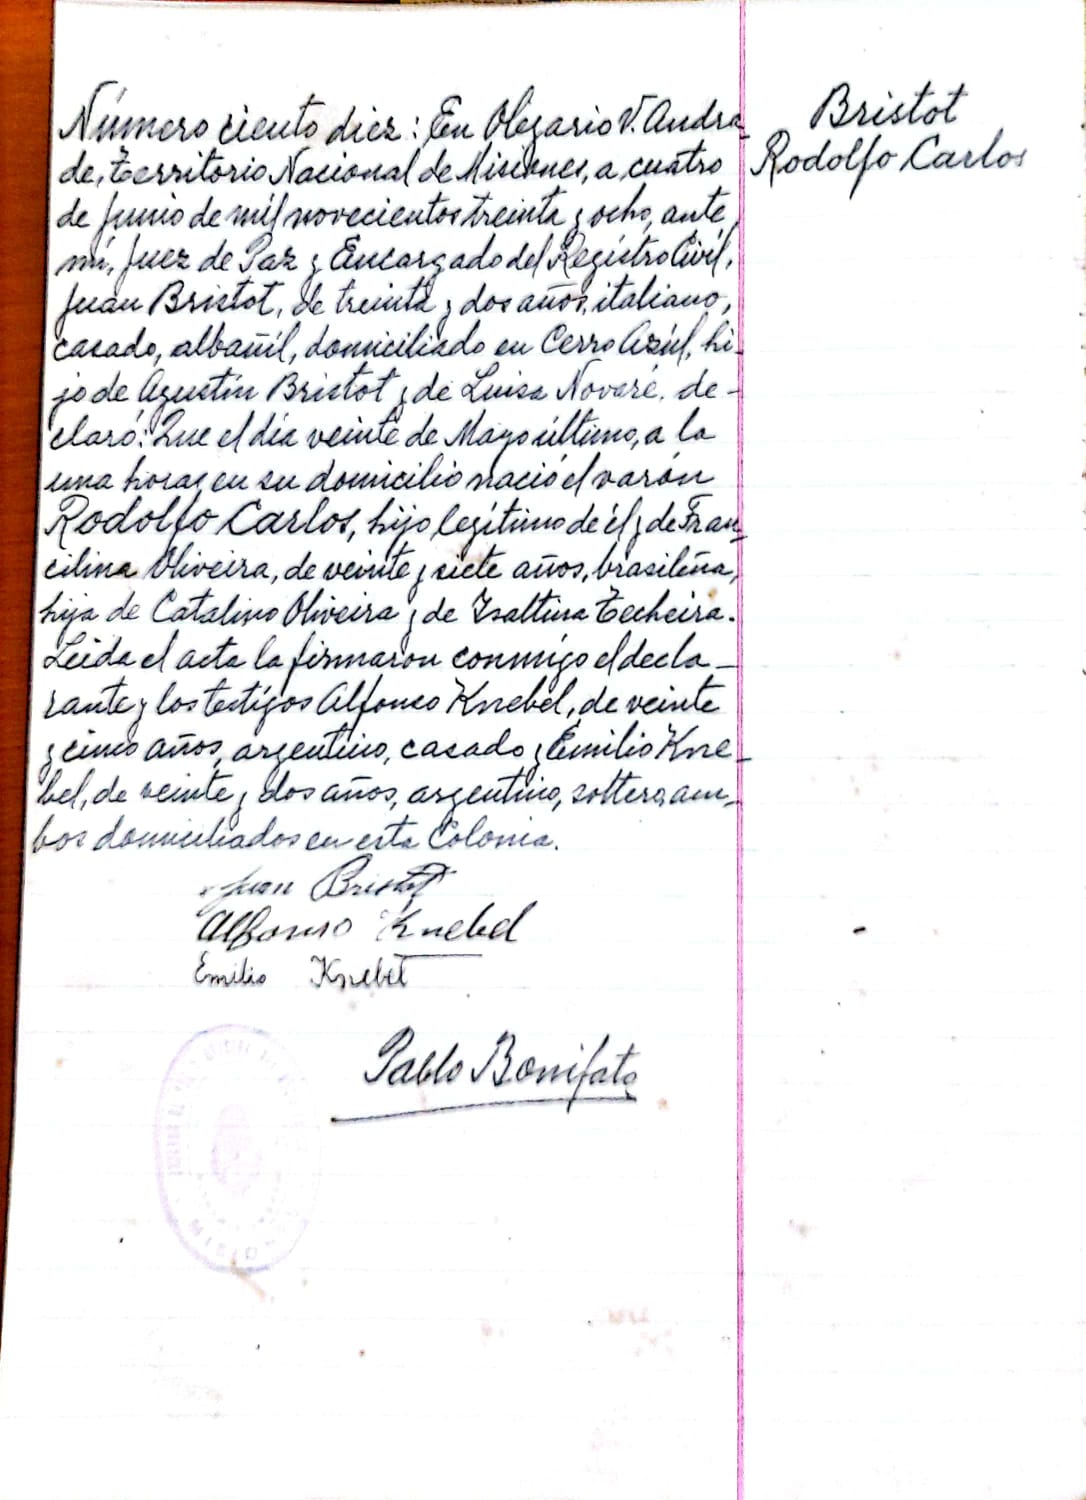 Número ciento diez: En Olegario V. Andra-
de, Territorio Nacional de Misiones, a cuatro
de Junio de mil novecientos treinta y ocho, ante
mí, Juez de Paz y Encargado del Registro Civil,
Juan Bristot, de treinta y dos años, italiano,
casado, albañil, domiciliado en Cerro Azúl, hi-
jo de Agustín Bristot y de Luisa Novaré, de-
claró: Que el día veinte de Mayo último, a la
una horas, en su domicilio nació el varón
Rodolfo Carlos, hijo legítimo de él y de Fran-
cilina Oliveira, de veinte y siete años, brasileña,
hija de Catalino Oliveira y de Isaltina Techeira.
Leida el acta la firmaron conmigo el decla-
rante y los testigos Alfonso Knebel, de veinte
y cinco años, argentino, casado y Emilio Kne-
bel, de veinte y dos años, argentino, soltero, am-
bos domiciliados en esta Colonia.
Juan Bristot
Alfonso Knebel
Emilio Knebel
Pablo Bonifato
MISIONES
Bristot
Rodolfo Carlos